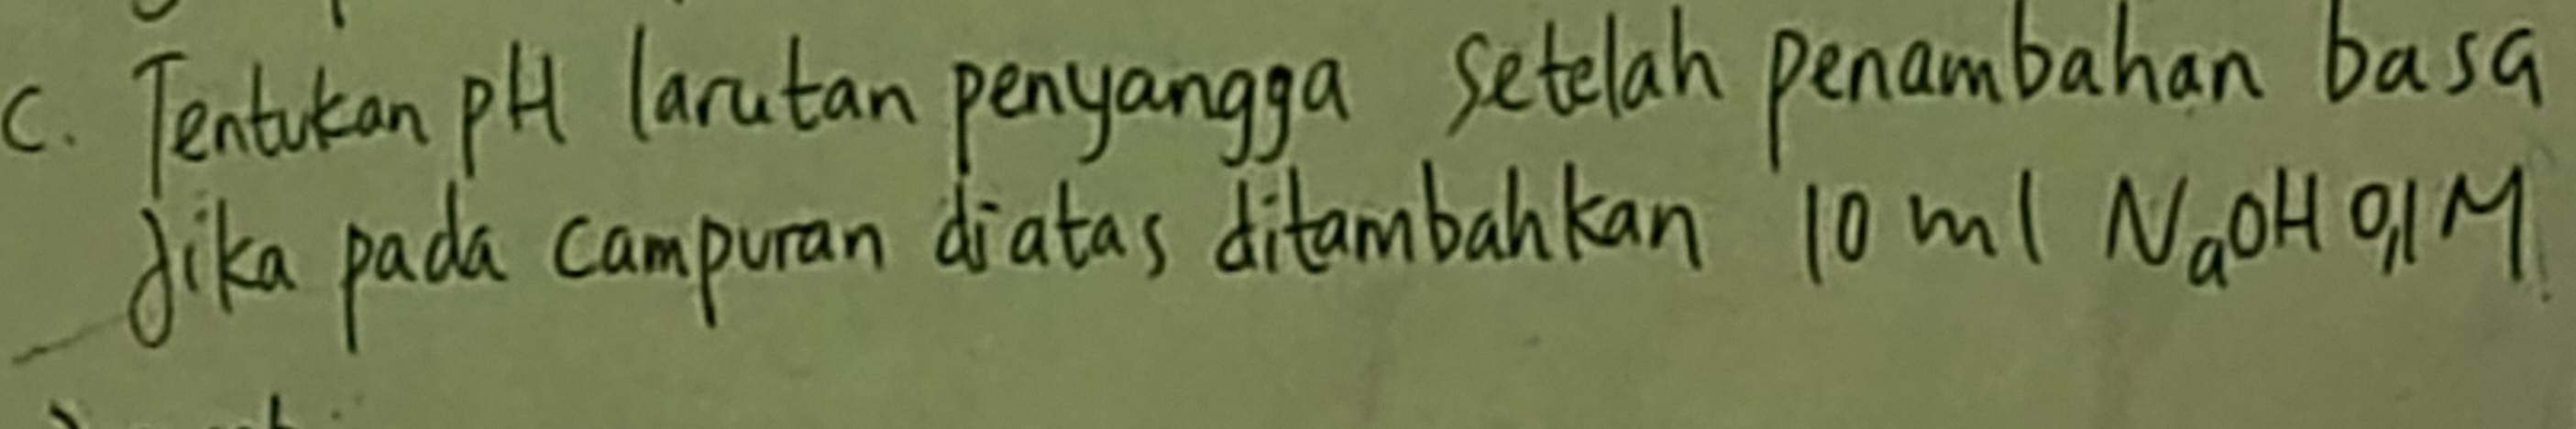 C. Tentukan pH larutan penyangga setelah penambahan basa
Jika pada campuran diatas ditambahkan 10 ml NaOH 0,1 M